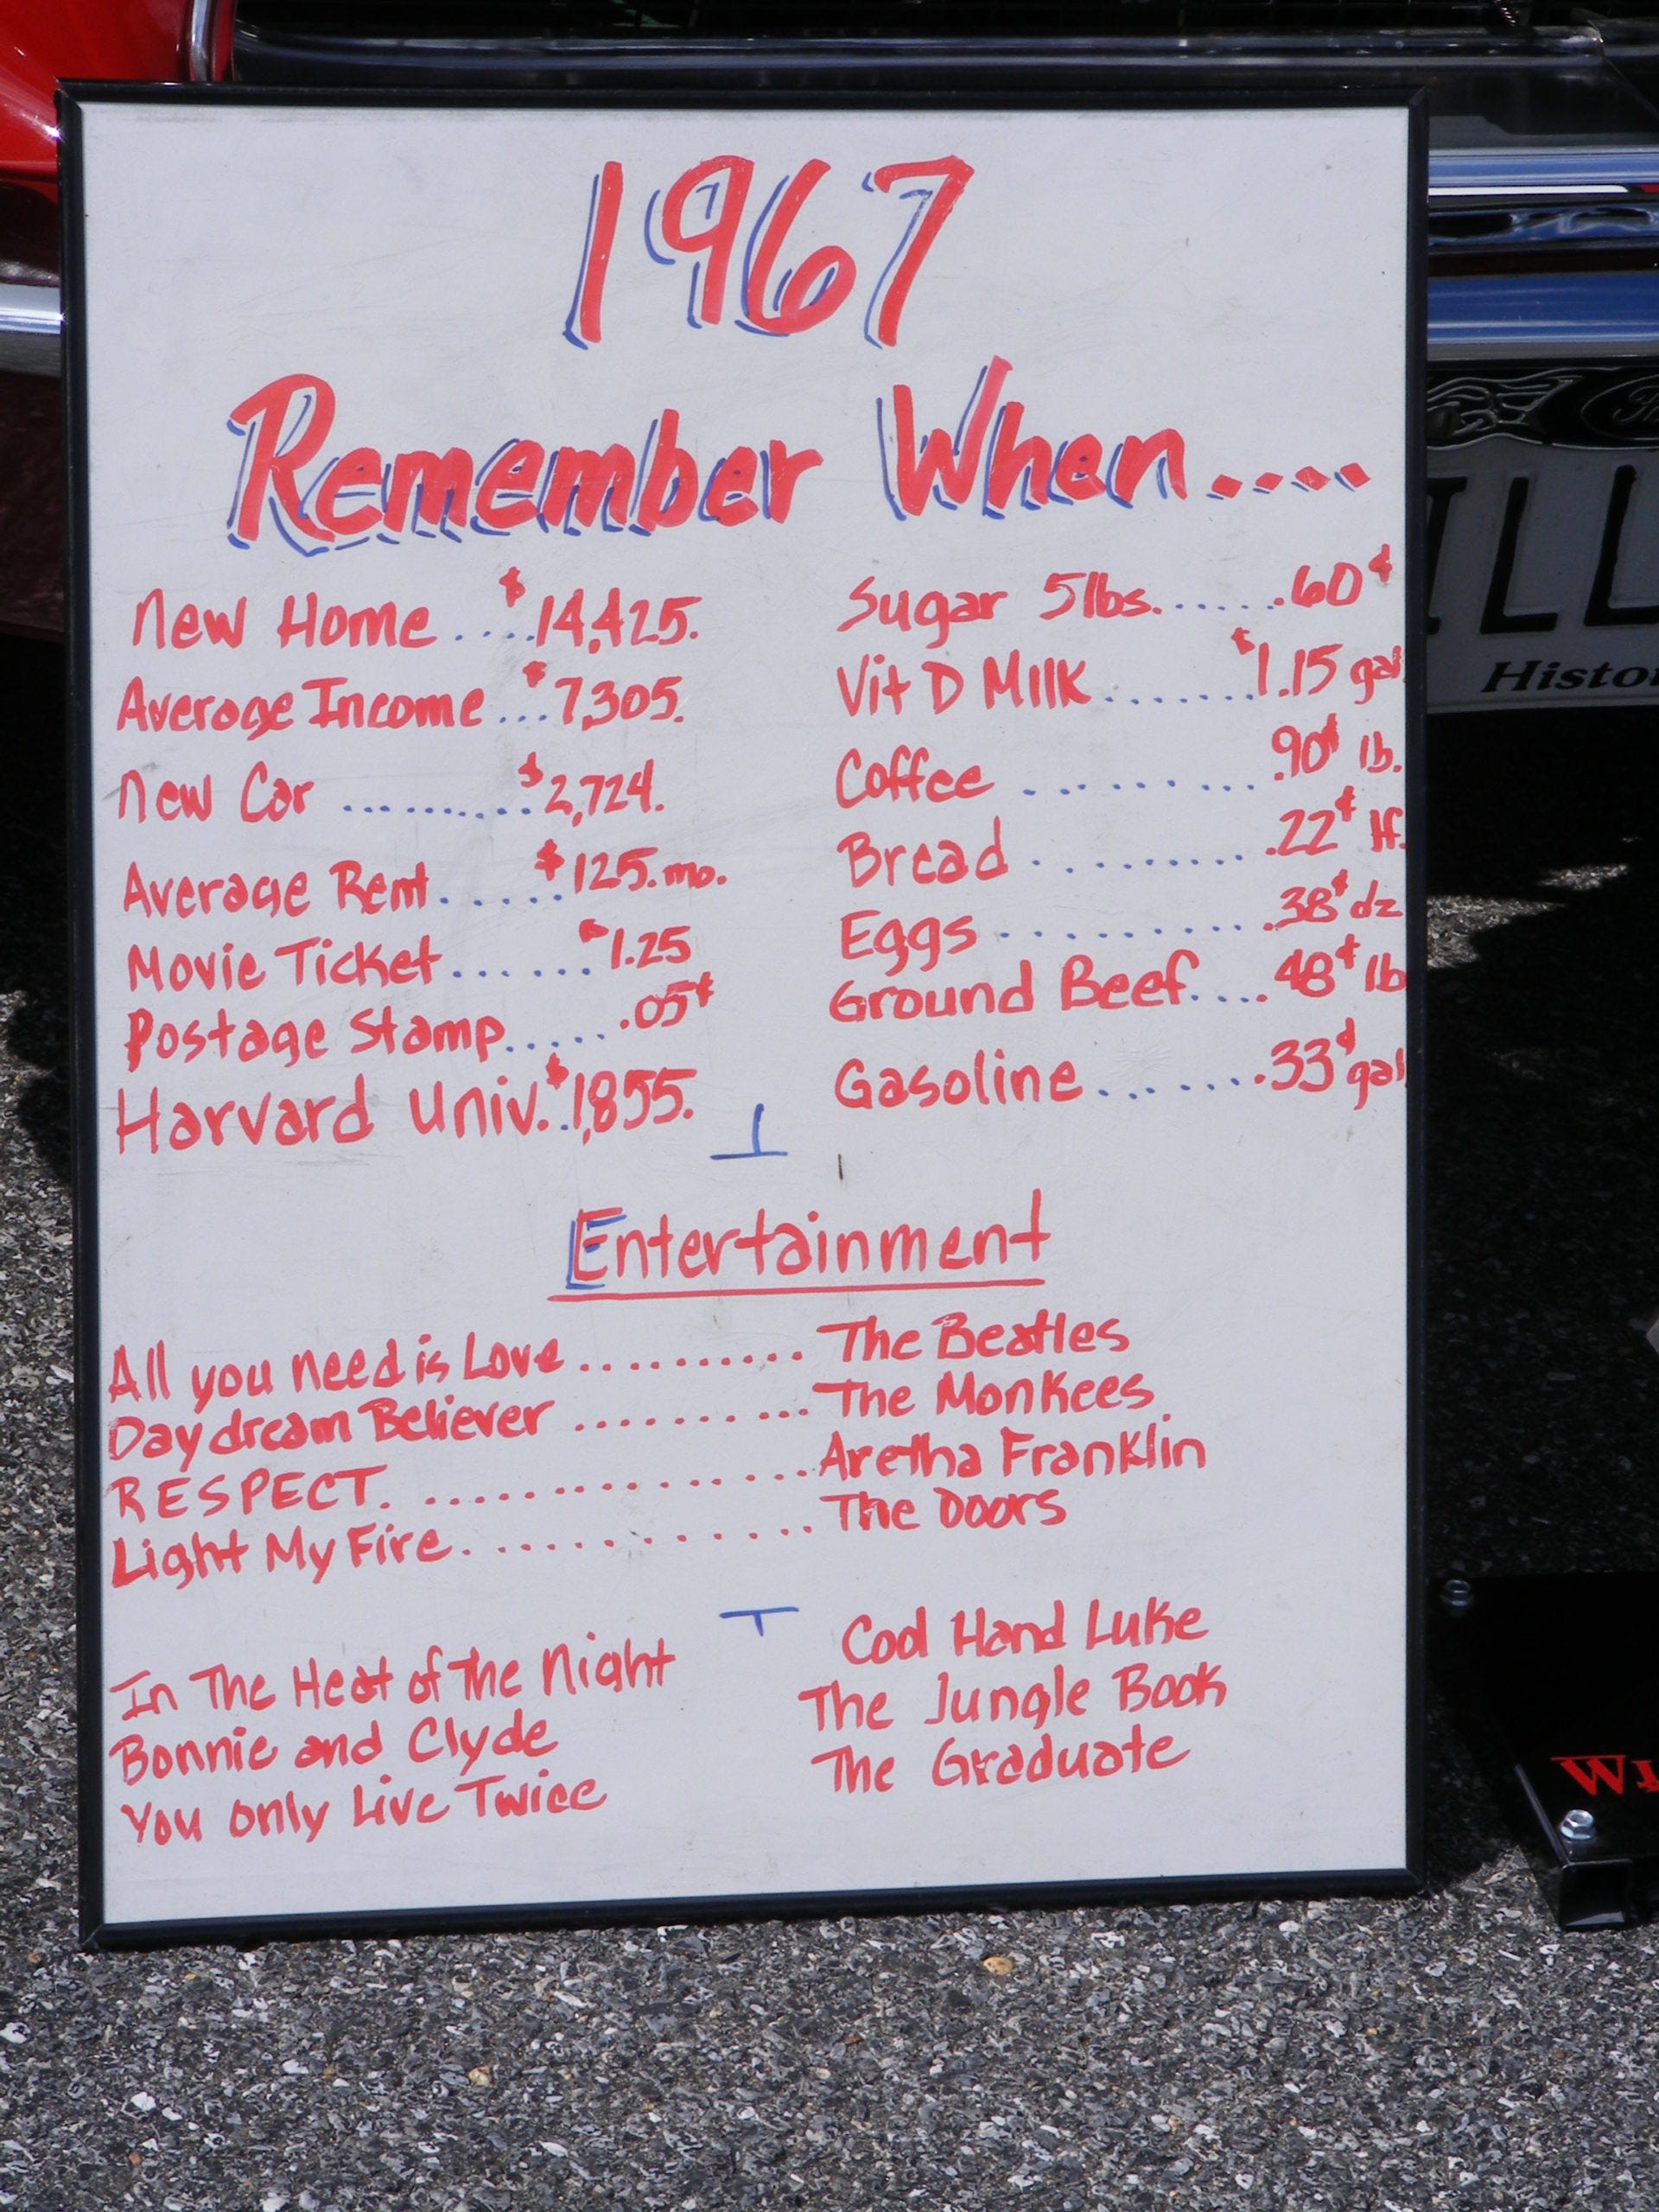 1967
Remember When....
New Home....$14,425.
Average Income...$7,305.
New Car..........$2,724.
Average Rent......$125.mo.
Movie Ticket.......$1.25
Postage Stamp......05¢
Harvard Univ..$1,855.
Sugar 5lbs........60¢
Vit D Milk.......$1.15 gal.
Coffee ..........90¢ lb.
Bread ..........22¢ lf.
Eggs...........38¢ dz
Ground Beef.....48¢ lb
Gasoline........33¢ gal
Entertainment
All you need is Love..........The Beatles
Daydream Believer..........The Monkees
RESPECT. ...............Aretha Franklin
Light My Fire............The Doors
In The Heat of The Night
Bonnie and Clyde
You only Live Twice
Cool Hand Luke
The Jungle Book
The Graduate
ILL